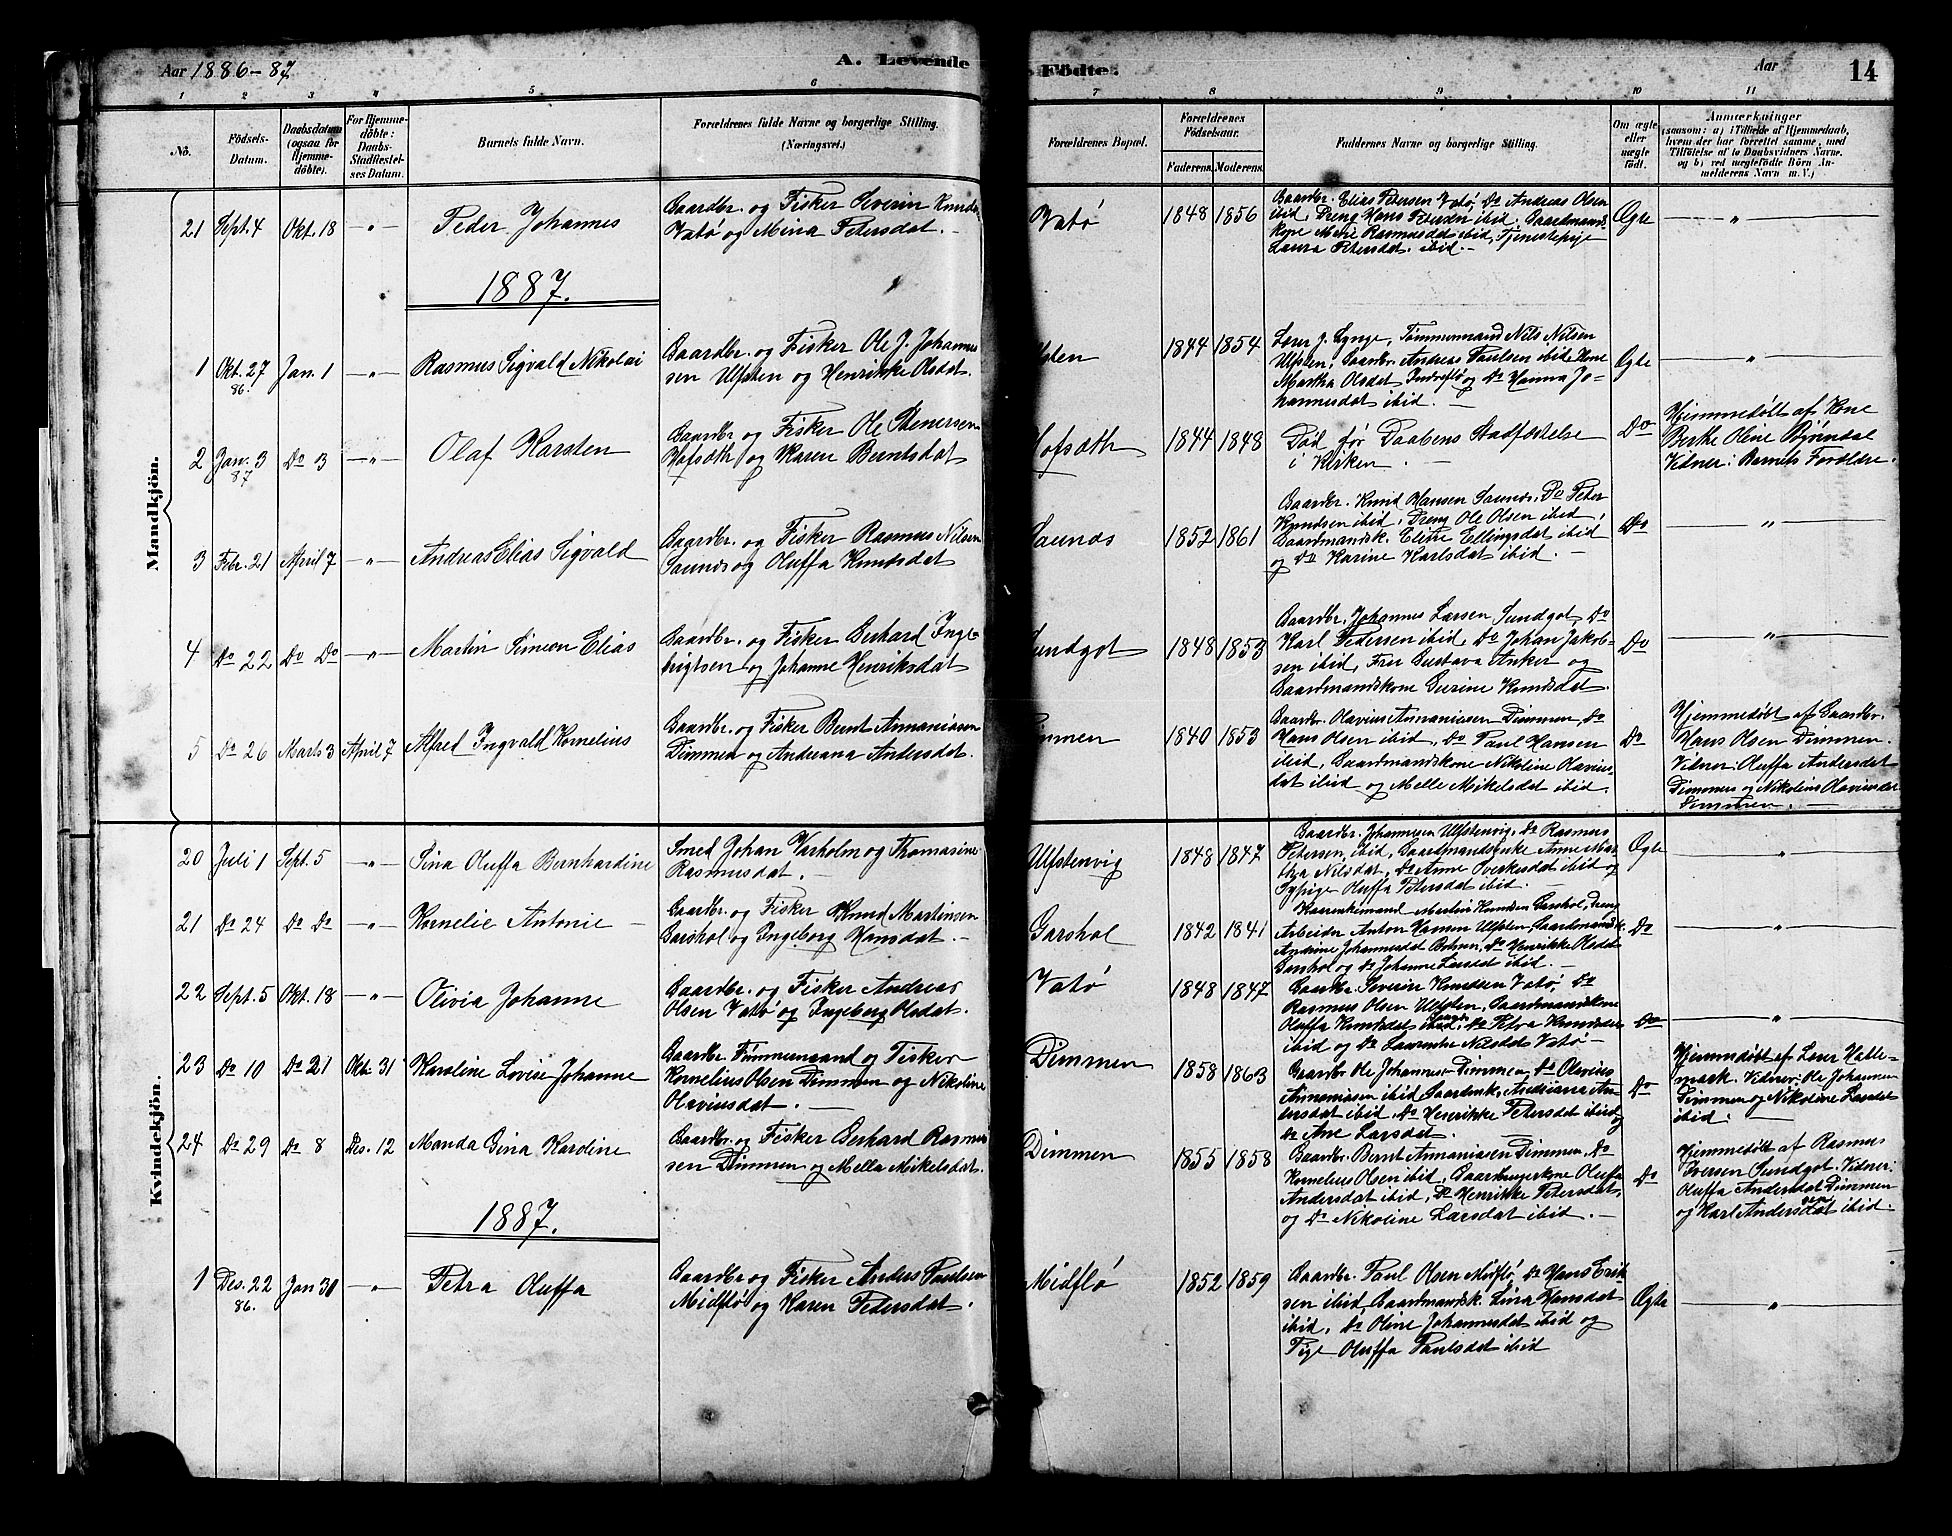 Aar 1886-87
A. Levende
Födte.
Aar
14
1 2 3 4 5 6 7 8 9 10 11
No.
Födsels-
Datum.
Daabsdatum
(ogsaa for
Hjemme-
döbte).
For Hjemme-
döbte:
Daabs-
Stadfæstel-
ses Datum.
Barnets fulde Navn.
Forældrenes fulde Navne og borgerlige Stilling.
(Næringsvei.)
Forældrenes Bopæl.
Forældrenes
Födselsaar.
Faderens. Moderens.
Faddernes Navne og borgerlige Stilling.
Om ægte
eller
uægte
födt.
Anmærkninger
(saasom: a) i Tilfælde af Hjemmedaab,
hvem der har forrettet samme, med
Tilföielse af to Daabsvidners Navne,
og b) ved uægtefödte Börn An-
melderens Navn m. V.)
Mandkjön.
21 Sept. 4 Okt. 18 -"- Peder Johannes
Gaardbr. og Fisker Severin Knuds
Vatø og Mina Petersdat.
Vatø 1848 1856
Gaardbr. Elias Petersen Vatø, Do Andreas Olsen
ibid, Dreng Hans Petersen ibid. Gaardmands
Kone Marie Rasmusdat ibid, Tjenestepige
Laura Petersdat. ibid.
Ægte -"-
1887.
1 Okt. 27 86. Jan. 1 -"- Rasmus Sigvald Nikolai
Gaardbr. og Fisker Ole J. Johannes
sen Ulfsten og Henrikke Olsdat.
sten 1844 1854
Lærer J. Lynge, Tømmermand Nils Nilsen
Ulfsten, Gaardbr. Andreas Paulsen ibid. Kone
Martha Olsdat Indreflø og Do Hanna Jo-
hannesdat ibid.
Ægte -"-
2 Jan. 3 87 Do 3 -"- Olaf Karsten
Gaardbr. og Fisker Ole Stenersen
Hofsæth og Karen Berntsdat
ofsæth 1844 1848
Død før Daabens Stadfæstelse
i Kirken.
Do
Hjemmedøbt af Kone
Berthe Oline Bjørndal
Vidner: Barnets Forældre.
3 Febr. 21 April 7 -"- Andreas Elias Sigvald
Gaardbr. og Fisker Rasmus Nilsen
Saunes og Oluffa Knudsdat
Saunes 1852 1861
Gaardbr. Knud Hansen Saunes, Do Peter
Knudsen ibid, Dreng Ole Olsen ibid,
Gaardmandsk. Elise Ellingsdat ibid
og Do Karine Karlsdat ibid.
Do -"-
4 Do 22 Do Do -"- Martin Simeon Elias
Gaardbr. og Fisker Berhard Inge-
brigtsen og Johanne Henriksdat
Sundgot 1848 1853
Gaardbr. Johannes Larsen Sundgot, Do
Karl Pedersen ibid, Do Johan Jakob-
sen ibid, Fru Gustava Anker og
Gaardmandskone Gurine Knudsdat.
Do -"-
5 Do 26 Marts 3 April 7 Alfred Ingvald Kornelius
Gaardbr. og Fisker Bernt Annaniassen
Dimmen og Andreana Andersdat.
Dimmen 1840 1853
Gaardbr. Olavius Annaniassen Dimmen, Do
Hans Olsen ibid, Do Paul Hansen
ibid, Gaardmandskone Nikoline Olavius-
dat ibid og Melle Mikelsdat ibid.
Do
Hjemmedøbt af Gaardbr.
Hans Olsen Dimmen.
Vidner: Oluffa Andersdat
Dimmen og Nikoline Olaviusdat
Dimmen.
Kvindekjön.
20 Juli 1 Sept. 5 -"- Sina Oluffa Bernhardine
Smed Johan Varholm og Thomasine
Rasmusdat.
Ulfstenvig 1848 1847
Gaardbr. Johannesen Ulfstenvig, Do Rasmus
Petersen, ibid, Gaardmandsenke Anne Mar-
tha Nilsdat, Do Anne Sverkesdat ibid og
Sypige Oluffa Petersdat ibid.
Ægte -"-
21 Do 24 Do Do -"- Kornelie Antonie
Gaardbr. og Fisker Knud Martinsen
Garshol og Ingeborg Hansdat.
Garshol 1842 1841
Kaarenkemand Martin Knudsen Garshol, Dreng
Arbeider Anton Hansen Ulfsten, Gaardmandsk.
Andrine Johannesdat Botnen, Do Henrikke Olsdat
Garshol og Do Johanne Larsdat ibid.
Do -"-
22 Sept. 5 Okt. 18 -"- Olivia Johanne
Gaardbr. og Fisker Andreas
Olsen Vatø og Ingeborg Olsdat.
Vatø 1848 1847
Gaardbr. Severin Knudsen Vatø, Do
Rasmus Olsen Ulfsten, Gaardmandskone
Oluffa Knudsdat ibid, Do Petra Knudsdat
ibid og Do Laurentse Nilsdat Vatø
Do -"-
23 Do 10 Do 21 Okt. 31 Karoline Lovise Johanne
Gaardbr. Tømmermand og Fisker
Kornelius Olsen Dimmen og Nikoline
Olaviusdat.
Dimmen 1858 1863
Gaardbr Ole Johannes. Dimmen, Do Olavius
Annaniasen ibid Gaardmk. Andriana An-
dersdat ibid, Do Henrikke Petersdat ibid og
Do Ane Larsdat.
Do
Hjemmedøbt af Lærer Hatle-
mark. Vidner: Ole Johannes
Dimmen og Nikoline Larsdat
ibid.
24 Do 29 Do 8 Des. 12 Manda Gina Karoline
Gaardbr. og Fisker Berhard Rasmus
sen Dimmen og Mella Mikelsdat.
Dimmen 1855 1858
Gaardbr. Bernt Annaniassen Dimmen, Do
Kornelius Olsen ibid, Gaardbrugerkone Oluffa
Andersdat ibid, Do Henrikke Petersdat,
og Do Nikoline Larsdat ibid.
Do
Hjemmedøbt af Rasmus
Iversen Sundgot. Vidner:
Oluffa Andersdat Dimmen
og Karl Andersen ibid.
1887.
1 Des. 22 86. Jan 30 -"- Petra Oluffa
Gaardbr og Fisker Anders Paulsen
Midflø og Karen Pedersdat.
Midflø 1852 1859
Gaardbr. Paul Olsen Midflø, Do Hans Erik-
sen ibid, Gaardmandsk. Lina Hansdat
ibid, Do Oline Johannesdat ibid og
Pige Oluffa Paulsdat ibid
Ægte -"-